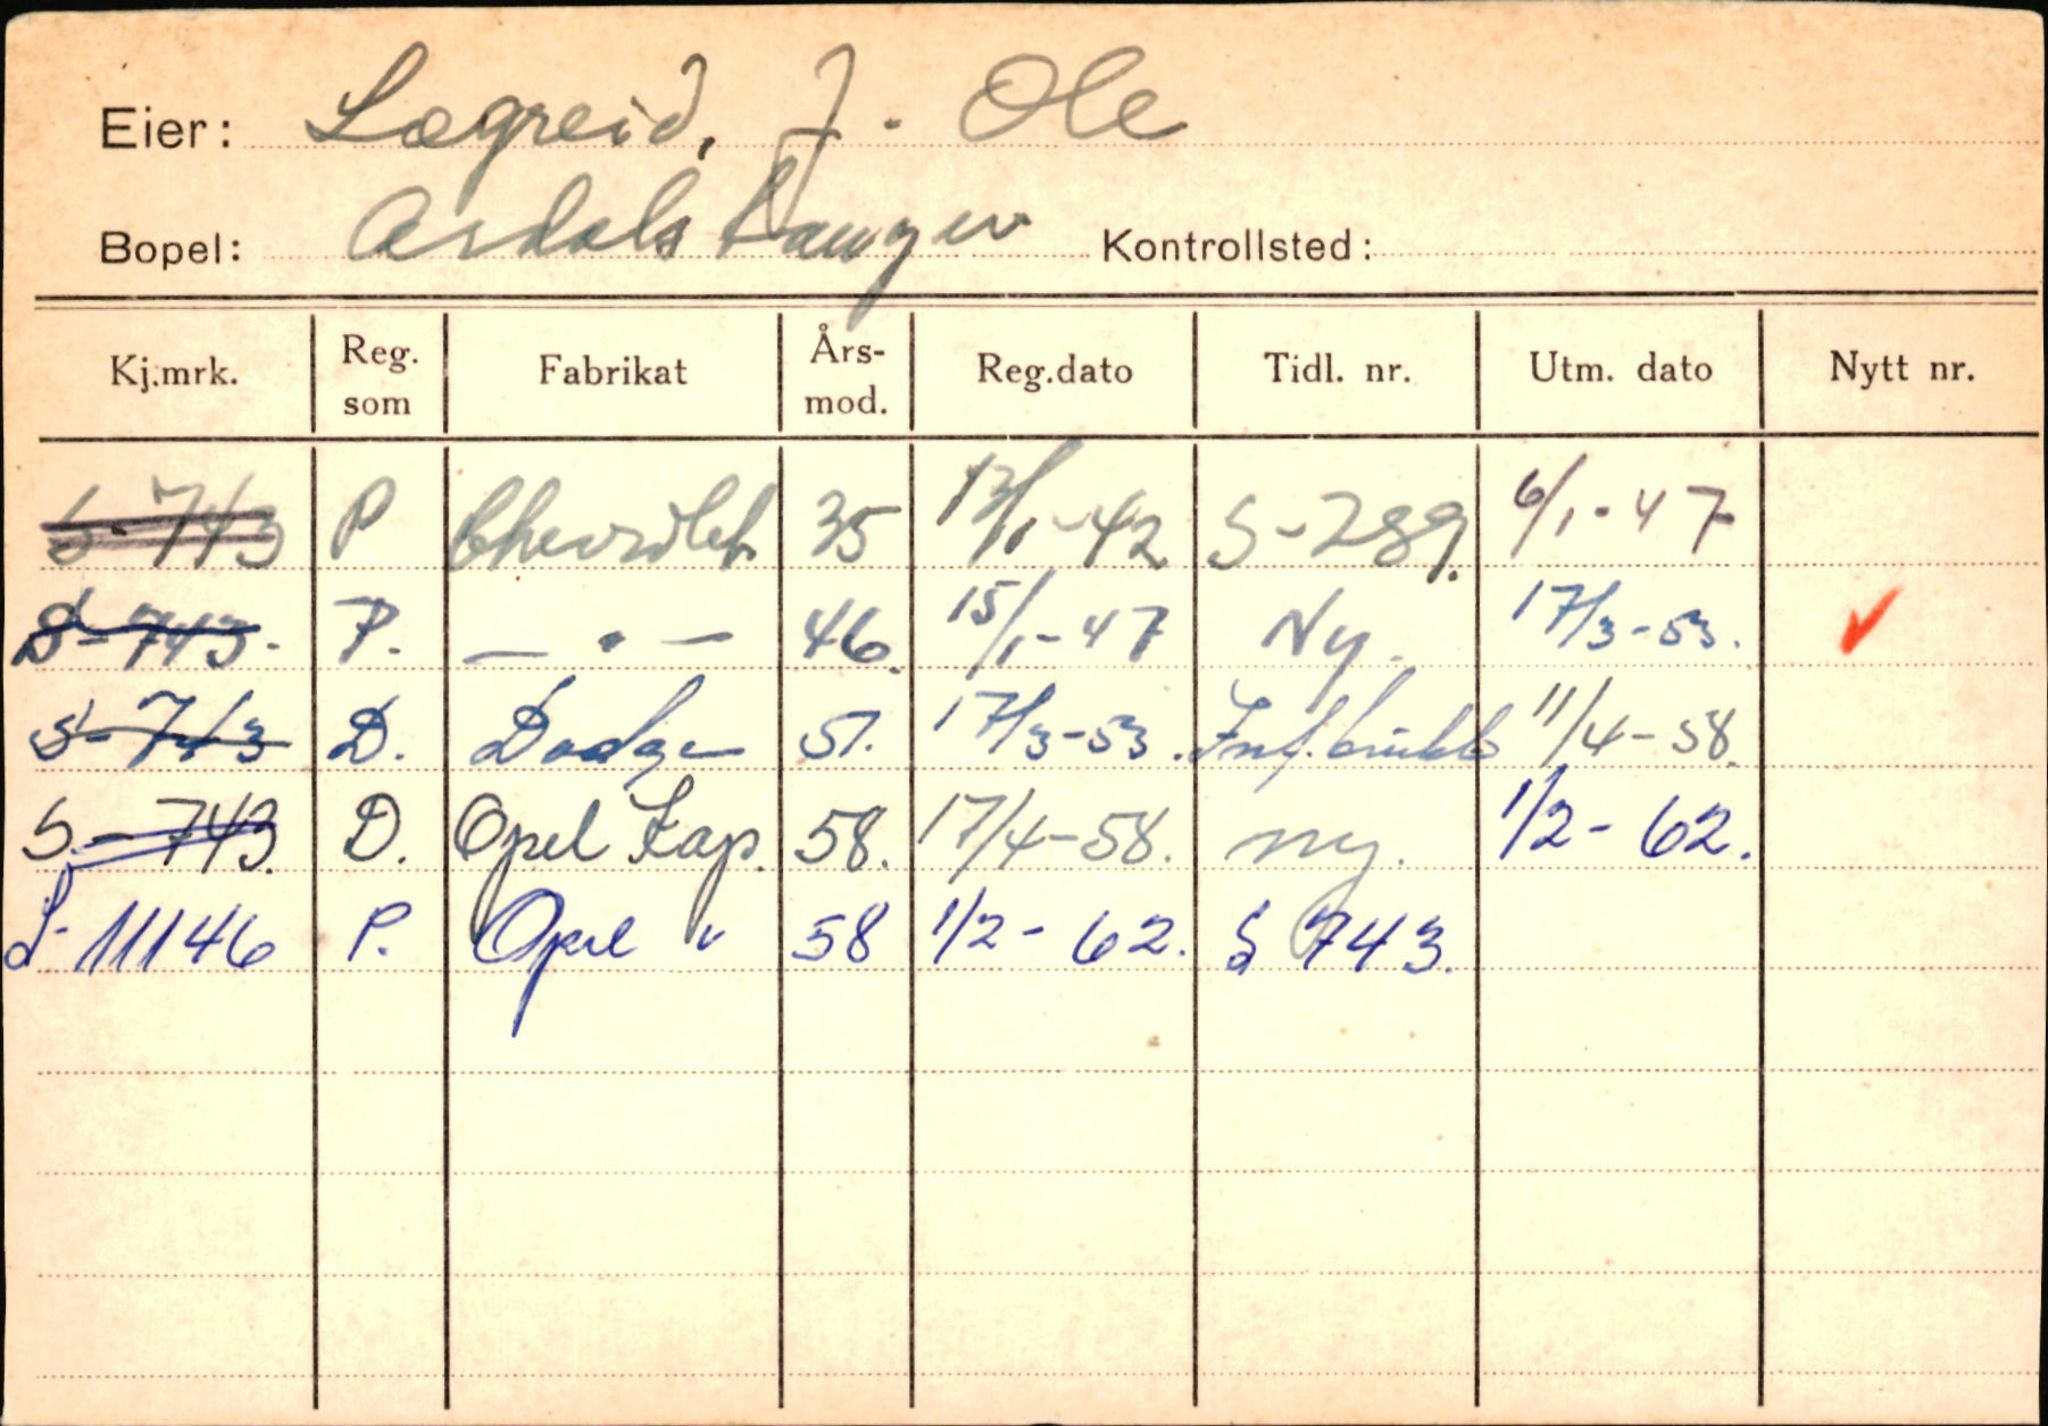 Eier: Lægreid, J. Ole
Bopel: Ardalstangen Kontrollsted:
Kj.mrk. Reg. som Fabrikat Års-mod. Reg.dato Tidl. nr. Utm. dato Nytt nr.
S-743 P Chevrolet 35 13/1-42 S-289. 6/1-47
S-743. P. — " — 46. 15/1-47 Ny. 17/3-53. ✓
S-743 D. Dodge 51. 17/3-53. 11/4-58.
S.-743. D. Opel Kap. 58. 17/4-58. ny. 1/2-62.
S-11146 P. Opel " 58 1/2-62. S 743.